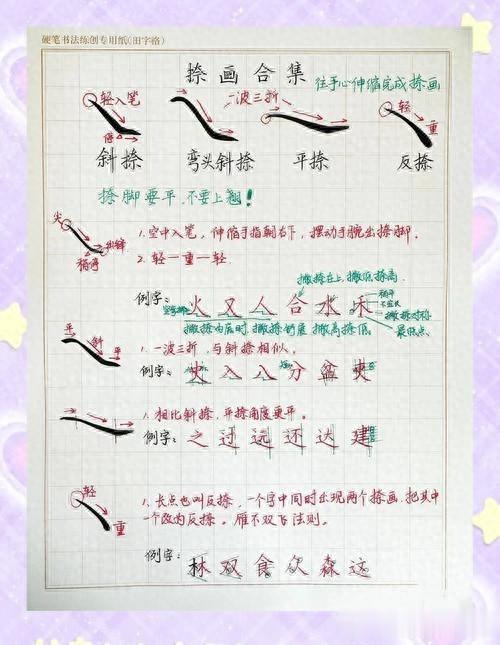 硬笔书法练创专用纸(田字格)
捺画合集
往手心伸缩完成捺画
轻入笔
停
一波三折
轻
重
斜捺 弯头斜捺 平捺 反捺
捺脚要平，不要上翘！
尖
稍停
出锋
1.空中入笔，伸缩手指朝右下，摆动手腕出捺脚.
2.轻一重一轻.
撇捺在上，撇低捺高
例字：火又人合水禾
撇捺对称
最低点.
撇捺为底时，撇捺舒展 撇高捺低
平 斜 平
1.一波三折，与斜捺相似。
例字：史入八分盆
1.相比斜捺，平捺角度更平.
例字：之过远还达建
轻
重
1.长点也叫反捺，一个字中同时出现两个捺画，把其中
一个改为反捺。雁不双飞法则。
例字：
林双食众森这